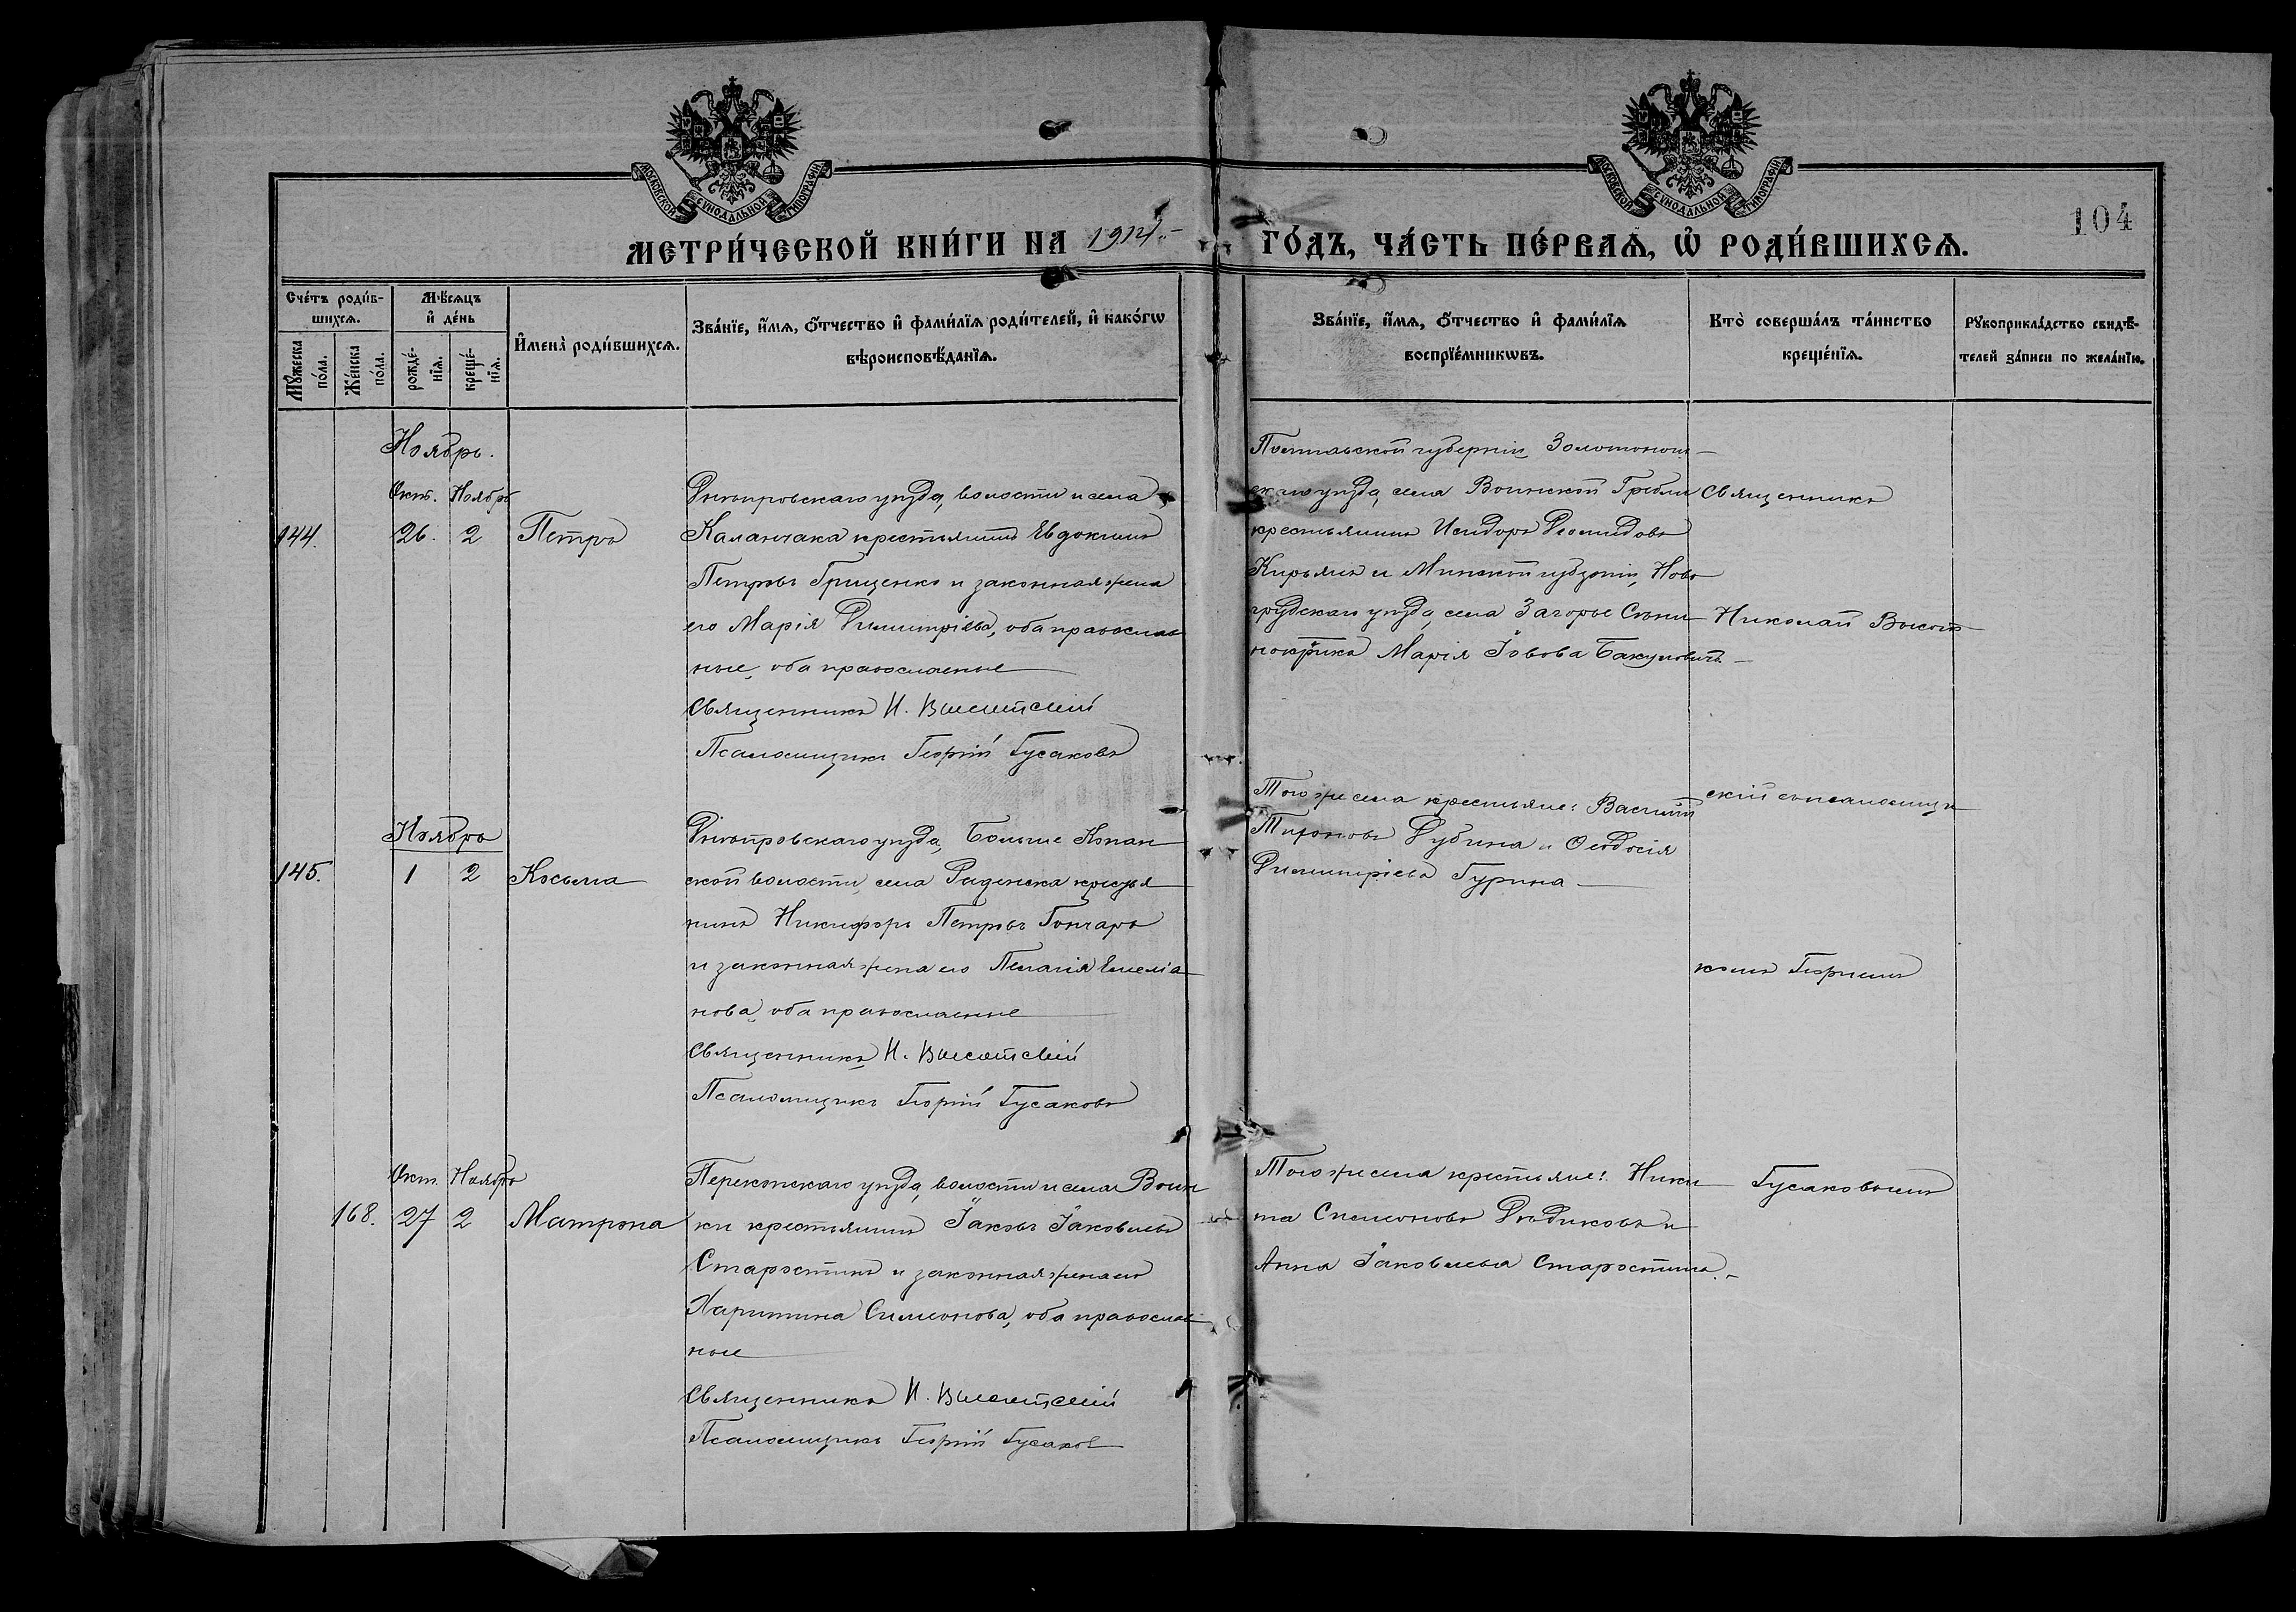 МОСКОВСКОЙ СѴНОДАЛЬНОЙ ТИПОГРАФІИ.
МОСКОВСКОЙ СѴНОДАЛЬНОЙ ТИПОГРАФІИ.
104
МЕТРИ́ЧЕСКОЙ КНИ́ГИ НА 1914 ГО́ДЪ, ЧА́СТЬ ПЕ́РВАѦ, Ѡ҆ РОДИ́ВШИХСѦ.
Сче́тъ роди́в-
шихсѧ.
Мꙋ́жеска по́ла.
Же́нска по́ла.
Мѣ́сѧцъ
и҆ де́нь
рожде́-
нїѧ.
креще́-
нїѧ.
И҆мена̀ роди́вшихсѧ.
Зва́нїе, и҆́мѧ, ѻ҆́тчество и҆ фами́лїѧ роди́телей, и҆ како́гѡ
вѣроисповѣ́данїѧ.
Зва́нїе, и҆́мѧ, ѻ҆́тчество и҆ фами́лїѧ
воспрїе́мникѡвъ.
Кто̀ соверша́лъ та́инство
креще́нїѧ.
Рꙋкоприкла́дство свидѣ́-
телей за́писи по жела́нїю.
Ноябрь.
Окт. Ноябрь
144. 26. 2 Петръ
Днѣпровскаго уѣзда, волости и села
Каланчака крестьянинъ Евдокимъ
Петровъ Грищенко и законная жена
его Марія Димитріева, оба православ
ные, оба православные
Священникъ Н. Высотскій
Псаломщикъ Георгій Гусаковъ
Полтавской губерніи, Золотонош-
скаго уѣзда, села Воинской Гребли
крестьянинъ Исидоръ Діомидовъ
Кирьянъ и Минской губерніи, Ново
грудскаго уѣзда, села Загорье
Марія Іовова Бакуновичъ
Священникъ
Николай Высот
скій съ псаломщи
комъ Георгіемъ
Гусаковымъ
Ноябрь
145. 1 2 Косьма
Днѣпровскаго уѣзда, Больше Копан
ской волости, села Раденска крестья
нинъ Никифоръ Петровъ Гончаръ
и законная жена его Пелагія Емеліа
нова, оба православные
Священникъ Н. Высотскій
Псаломщикъ Георгій Гусаковъ
Того же села крестьяне: Василій
Тихоновъ Дубина и Ѳеодосія
Димитріева Гурина
Окт. Ноябрь
168. 27 2 Матрона
Перекопскаго уѣзда, волости и села Воин
ки крестьянинъ Іаковъ Іаковлевъ
Старостинъ и законная жена его
Харитина Симеонова, оба православ
ные
Священникъ Н. Высотскій
Псаломщикъ Георгій Гусаковъ
Того же села крестьяне: Ники
та Симеоновъ Дѣдиковъ и
Анна Іаковлева Старостина.